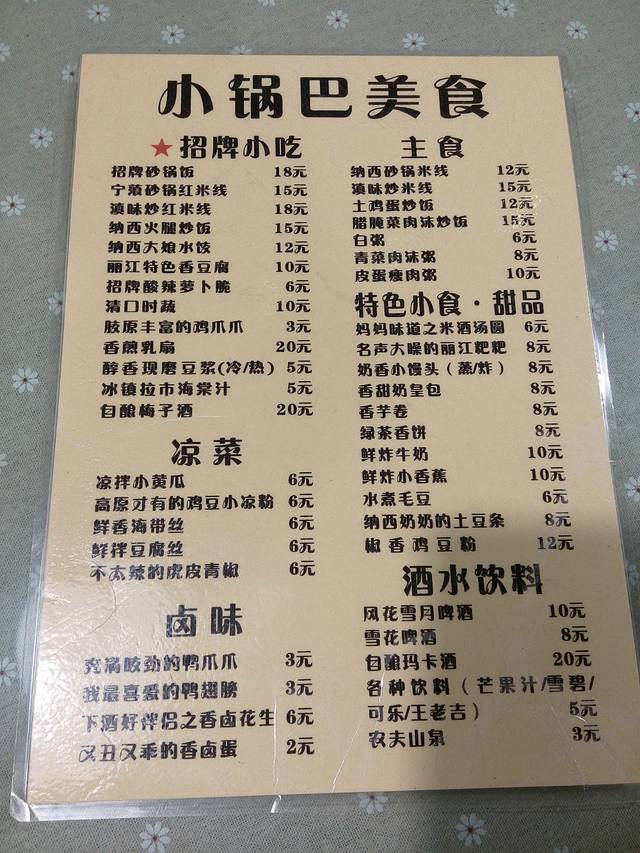 小锅巴美食
★招牌小吃
招牌砂锅饭 18元
宁蒗砂锅红米线 15元
滇味炒红米线 18元
纳西火腿炒饭 15元
纳西大娘水饺 12元
丽江特色香豆腐 10元
招牌酸辣萝卜脆 6元
清口时蔬 10元
胶原丰富的鸡爪爪 3元
香煎乳扇 20元
醇香现磨豆浆(冷/热) 5元
冰镇拉市海棠汁 5元
自酿梅子酒 20元
凉菜
凉拌小黄瓜 6元
高原才有的鸡豆小凉粉 6元
鲜香海带丝 6元
鲜拌豆腐丝 6元
不太辣的虎皮青椒 6元
卤味
充满吱劲的鸭爪爪 3元
我最喜爱的鸭翅膀 3元
下酒好伴侣之香卤花生 6元
又丑又乖的香卤蛋 2元
主食
纳西砂锅米线 12元
滇味炒米线 15元
土鸡蛋炒饭 12元
腊腌菜肉沫炒饭 15元
白粥 6元
青菜肉沫粥 8元
皮蛋瘦肉粥 10元
特色小食·甜品
妈妈味道之米酒汤圆 6元
名声大噪的丽江粑粑 8元
奶香小馒头（蒸/炸） 8元
香甜奶皇包 8元
香芋卷 8元
绿茶香饼 8元
鲜炸牛奶 10元
鲜炸小香蕉 10元
水煮毛豆 6元
纳西奶奶的土豆条 8元
椒香鸡豆粉 12元
酒水饮料
风花雪月啤酒 10元
雪花啤酒 8元
自酿玛卡酒 20元
各种饮料（芒果汁/雪碧/
可乐/王老吉） 5元
农夫山泉 3元